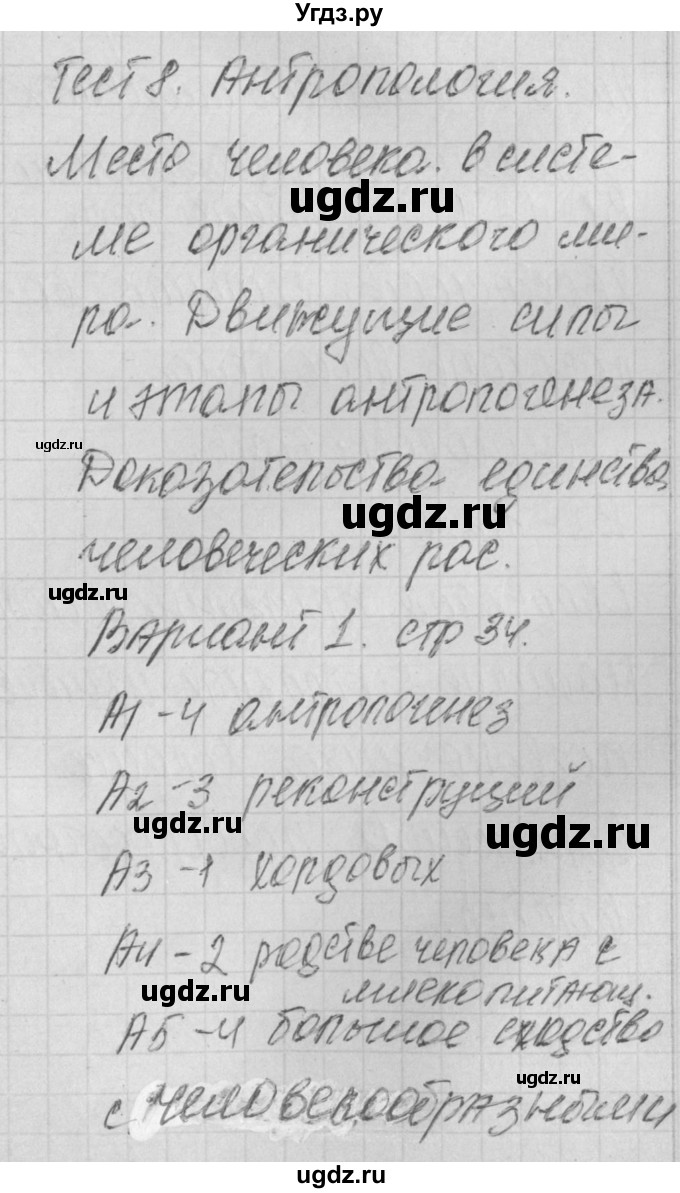 Угдз.ру
Тест 8. Антропология.
Место человека. в систе-
ме органического ми-
ра. Движущие силы
и этапы антропогенеза.
Доказательства единства
человеческих рас.
Вариант 1. стр 34.
А1 - 4 антропогенез
А2 - 3 реконструций
А3 - 1 хордовых
А4 - 2 родстве человека с
млекопитающ.
А5 - 4 большое сходство
с человекообразными
ugdz.ru
ugdz.ru
ugdz.ru
ugdz.ru
ugdz.ru
ugdz.ru
ugdz.ru
ugdz.ru
ugdz.ru